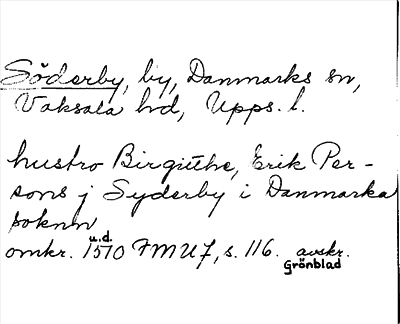 Söderby, by, Danmarks sn,
Vaksala hd, Upps. l.
hustro Birgitthe, Erik Per-
sons j Syderby i Danmarka
soknn
u.d.
omkr. 1510 FMU 7, s. 116. avskr.
Grönblad